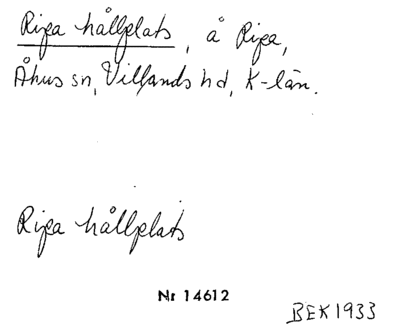 Ripa hållplats, å Ripa,
Åhus sn, Villands hd, K-län.
Ripa hållplats
Nr 14612
BEK 1933